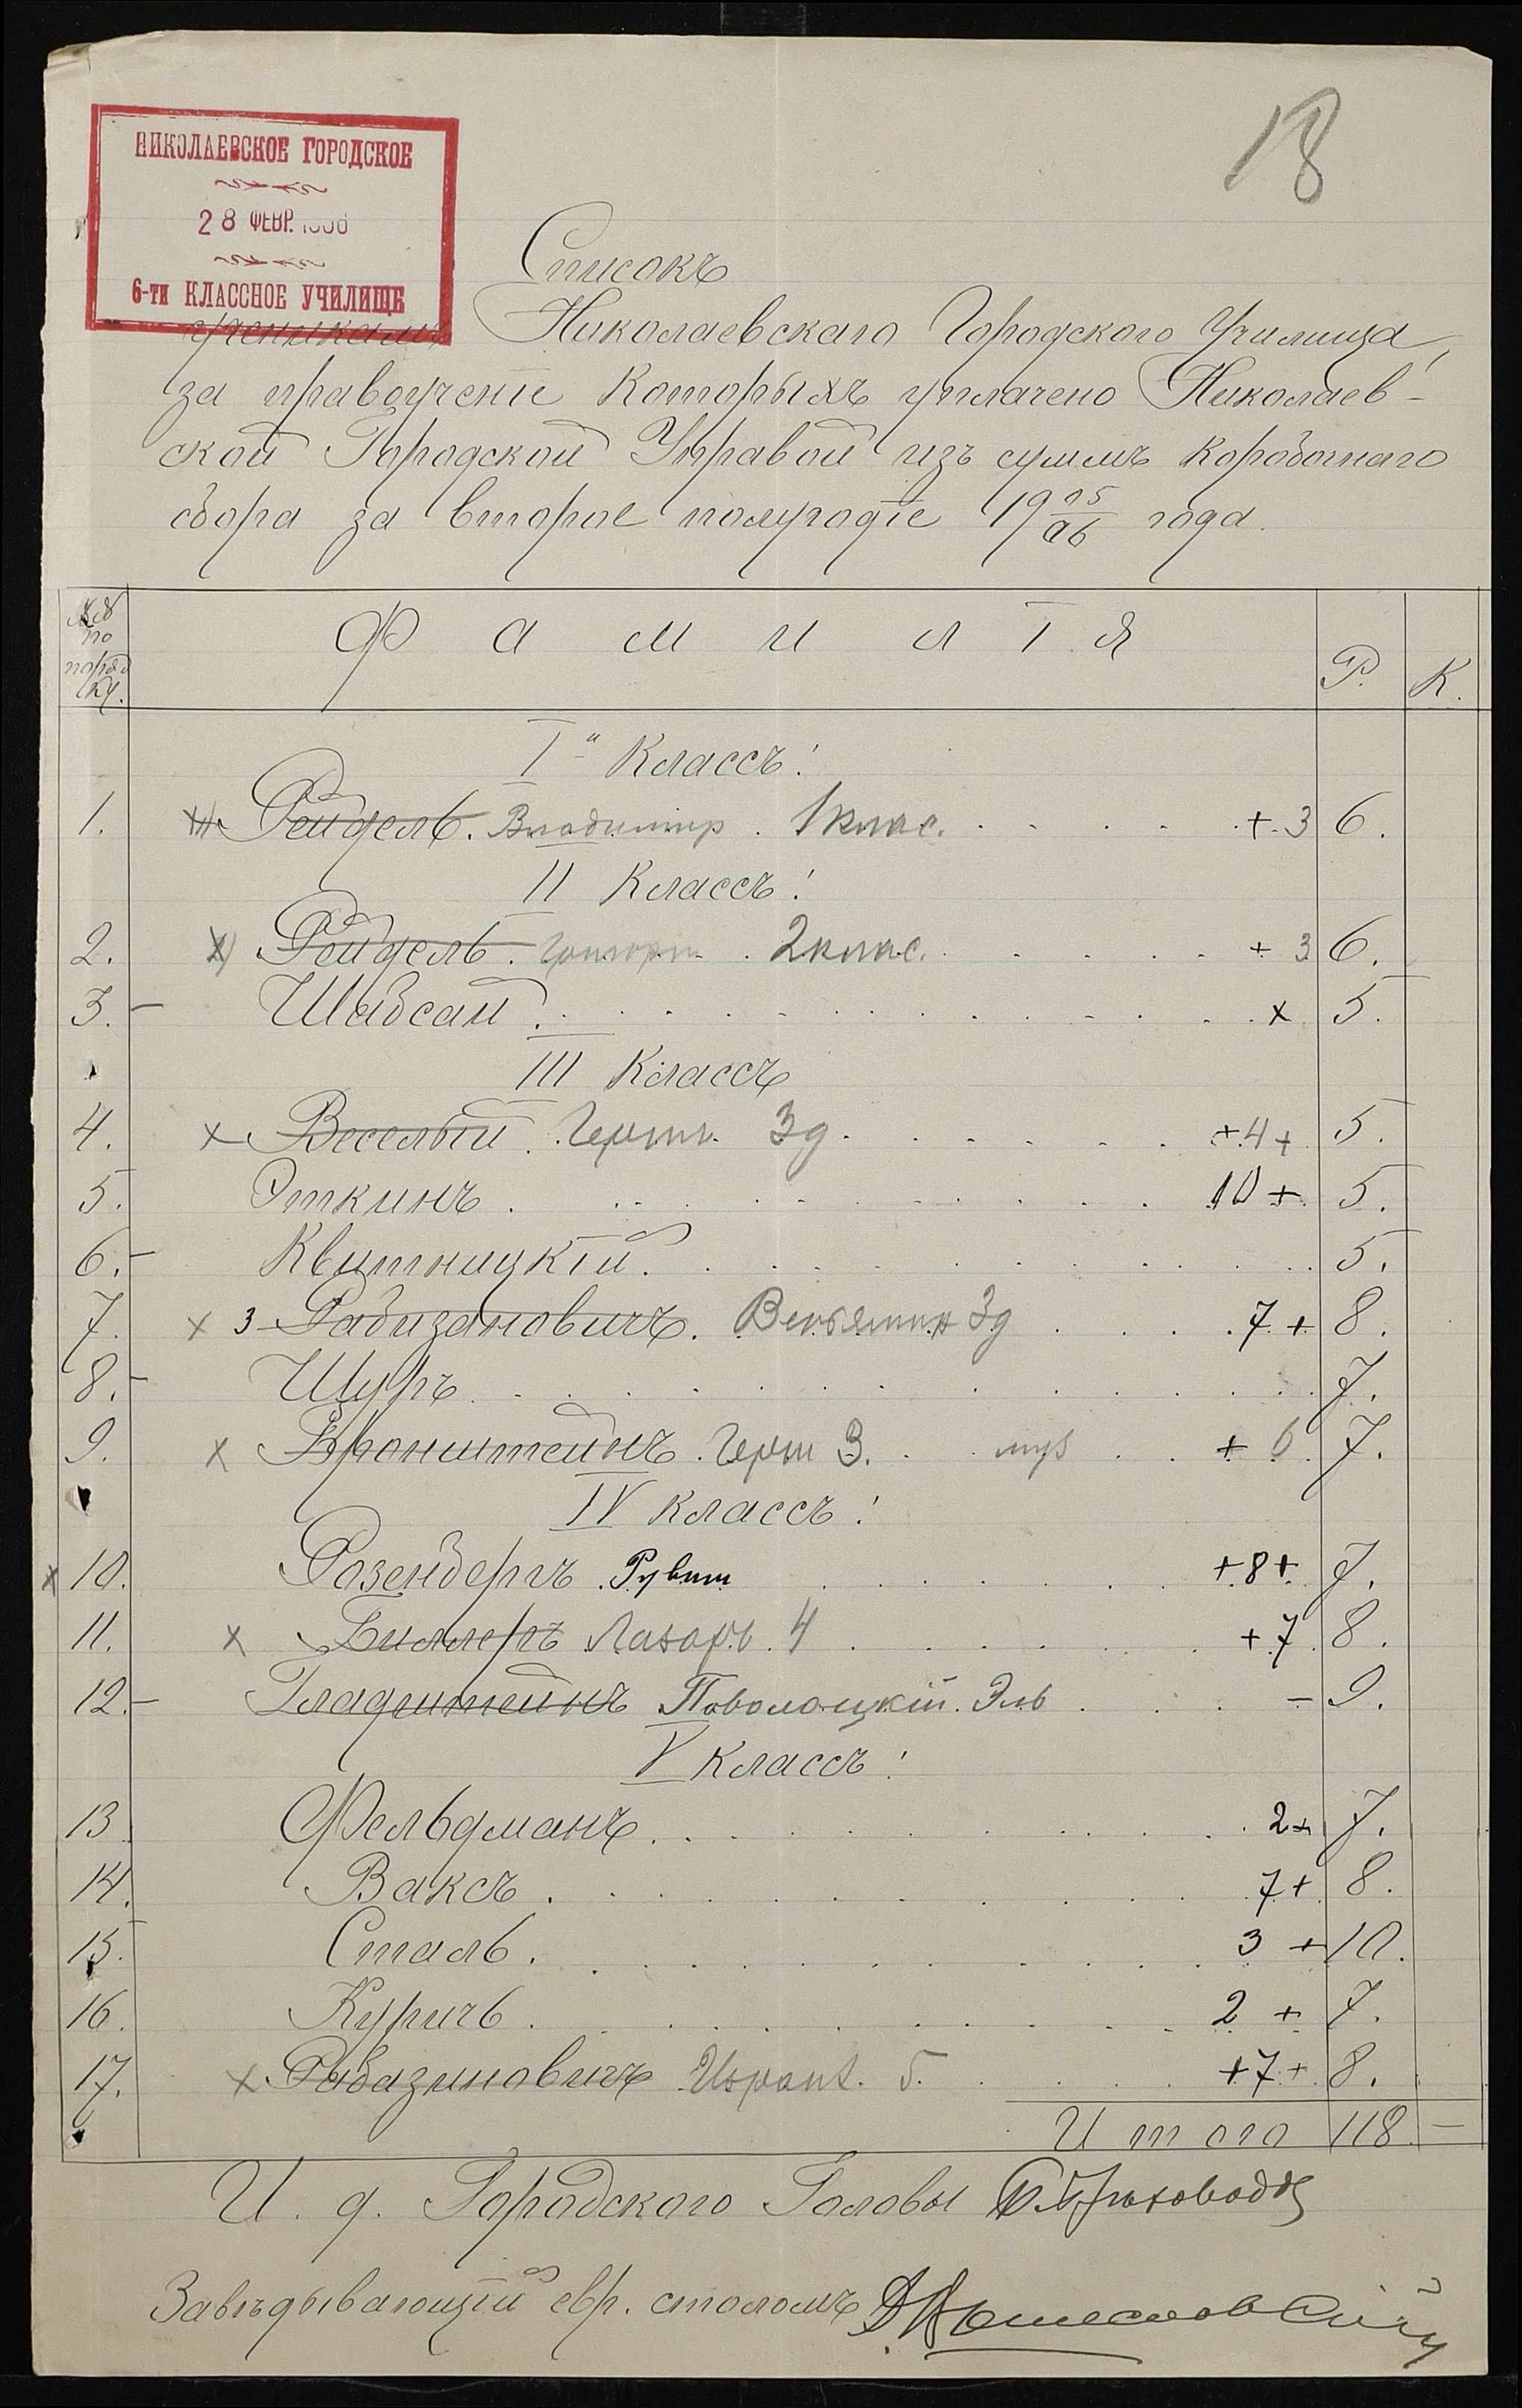 18
НИКОЛАЕВСКОЕ ГОРОДСКОЕ
28 ФЕВР. 1906
6-ти КЛАССНОЕ УЧИЛИЩЕ
Списокъ
ученикамъ Николаевскаго Городского Училища,
за правоученіе которыхъ уплачено Николаев-
ской Городской Управой изъ суммъ коробочнаго
сбора за второе полугодіе 1905/06 года.
№№ по порядку. Фамилія Р. К.
I-й Классъ:
1. Рейдель. Владимир. 1 клас. + 3 6.
II Классъ:
2. х Рейдель. Григорий. 2 клас. + 3 6.
3. – Шабсай. х 5.
III Классъ
4. х Веселый. Герш. 3д. +4+ 5.
5. Эткинъ. 10 + 5.
6. – Квитницкій. 5.
7. х 3 Рабизановичъ. Веньямин 3д 7 + 8.
8. – Щуръ. 7.
9. х Бронштейнъ. Герш 3. + 6 7.
IV классъ:
х 10. Розенбергъ. Рувин +8+ 7.
11. х Биллеръ Лазарь. 4 +7 8.
12. – Гладштейнъ Поволоцкій. Эль – 9.
V классъ:
13 Фельдманъ. 2+ 7.
14. Ваксъ. 7+ 8.
15. Сталь. 3 + 10.
16. Куричъ. 2 + 7.
17. х Рабазиновичъ Израил. 5. +7+ 8.
Итого 118. –
И. д. Городского Головы
Завѣдывающій евр. столомъ